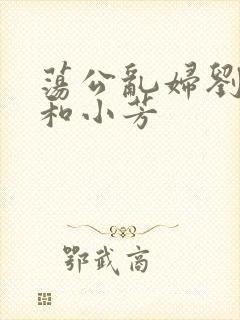 蕩公亂婦劉
和小芳
鄂武商